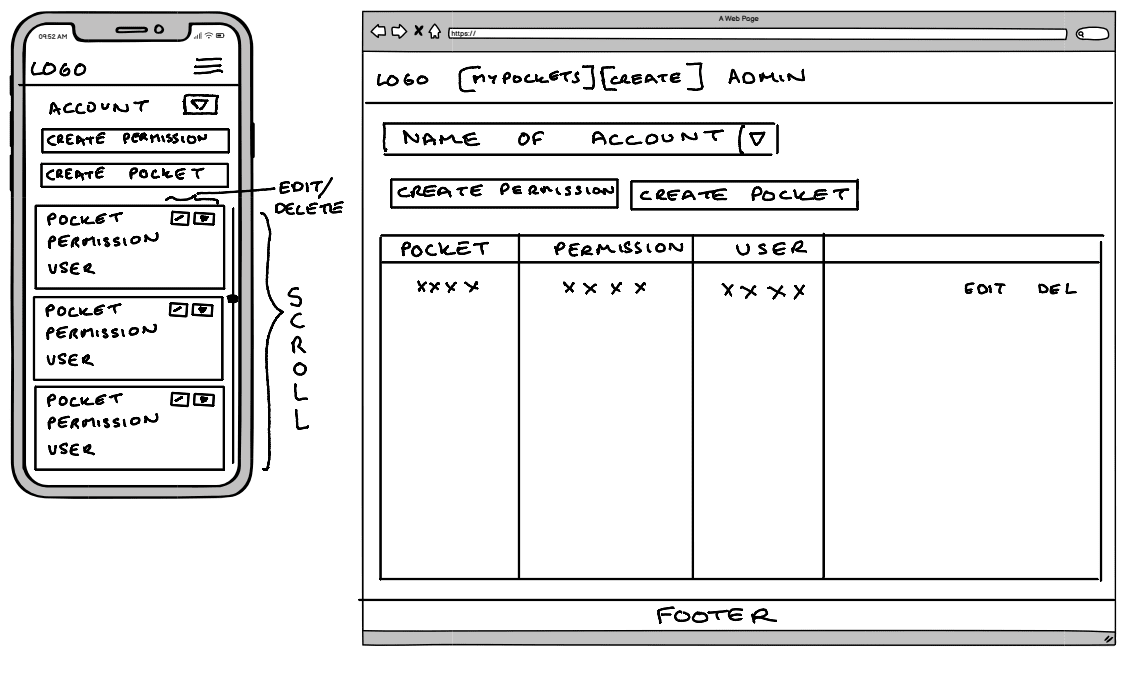 09:52 AM
LOGO
ACCOUNT
CREATE PERMISSION
CREATE POCKET
EDIT/
DELETE
POCKET
PERMISSION
USER
POCKET
PERMISSION
USER
POCKET
PERMISSION
USER
SCROLL
A Web Page
https://
LOGO [MYPOCKETS] [CREATE] ADMIN
NAME OF ACCOUNT
CREATE PERMISSION CREATE POCKET
POCKET PERMISSION USER
XXXX XXXX XXXX EDIT DEL
FOOTER